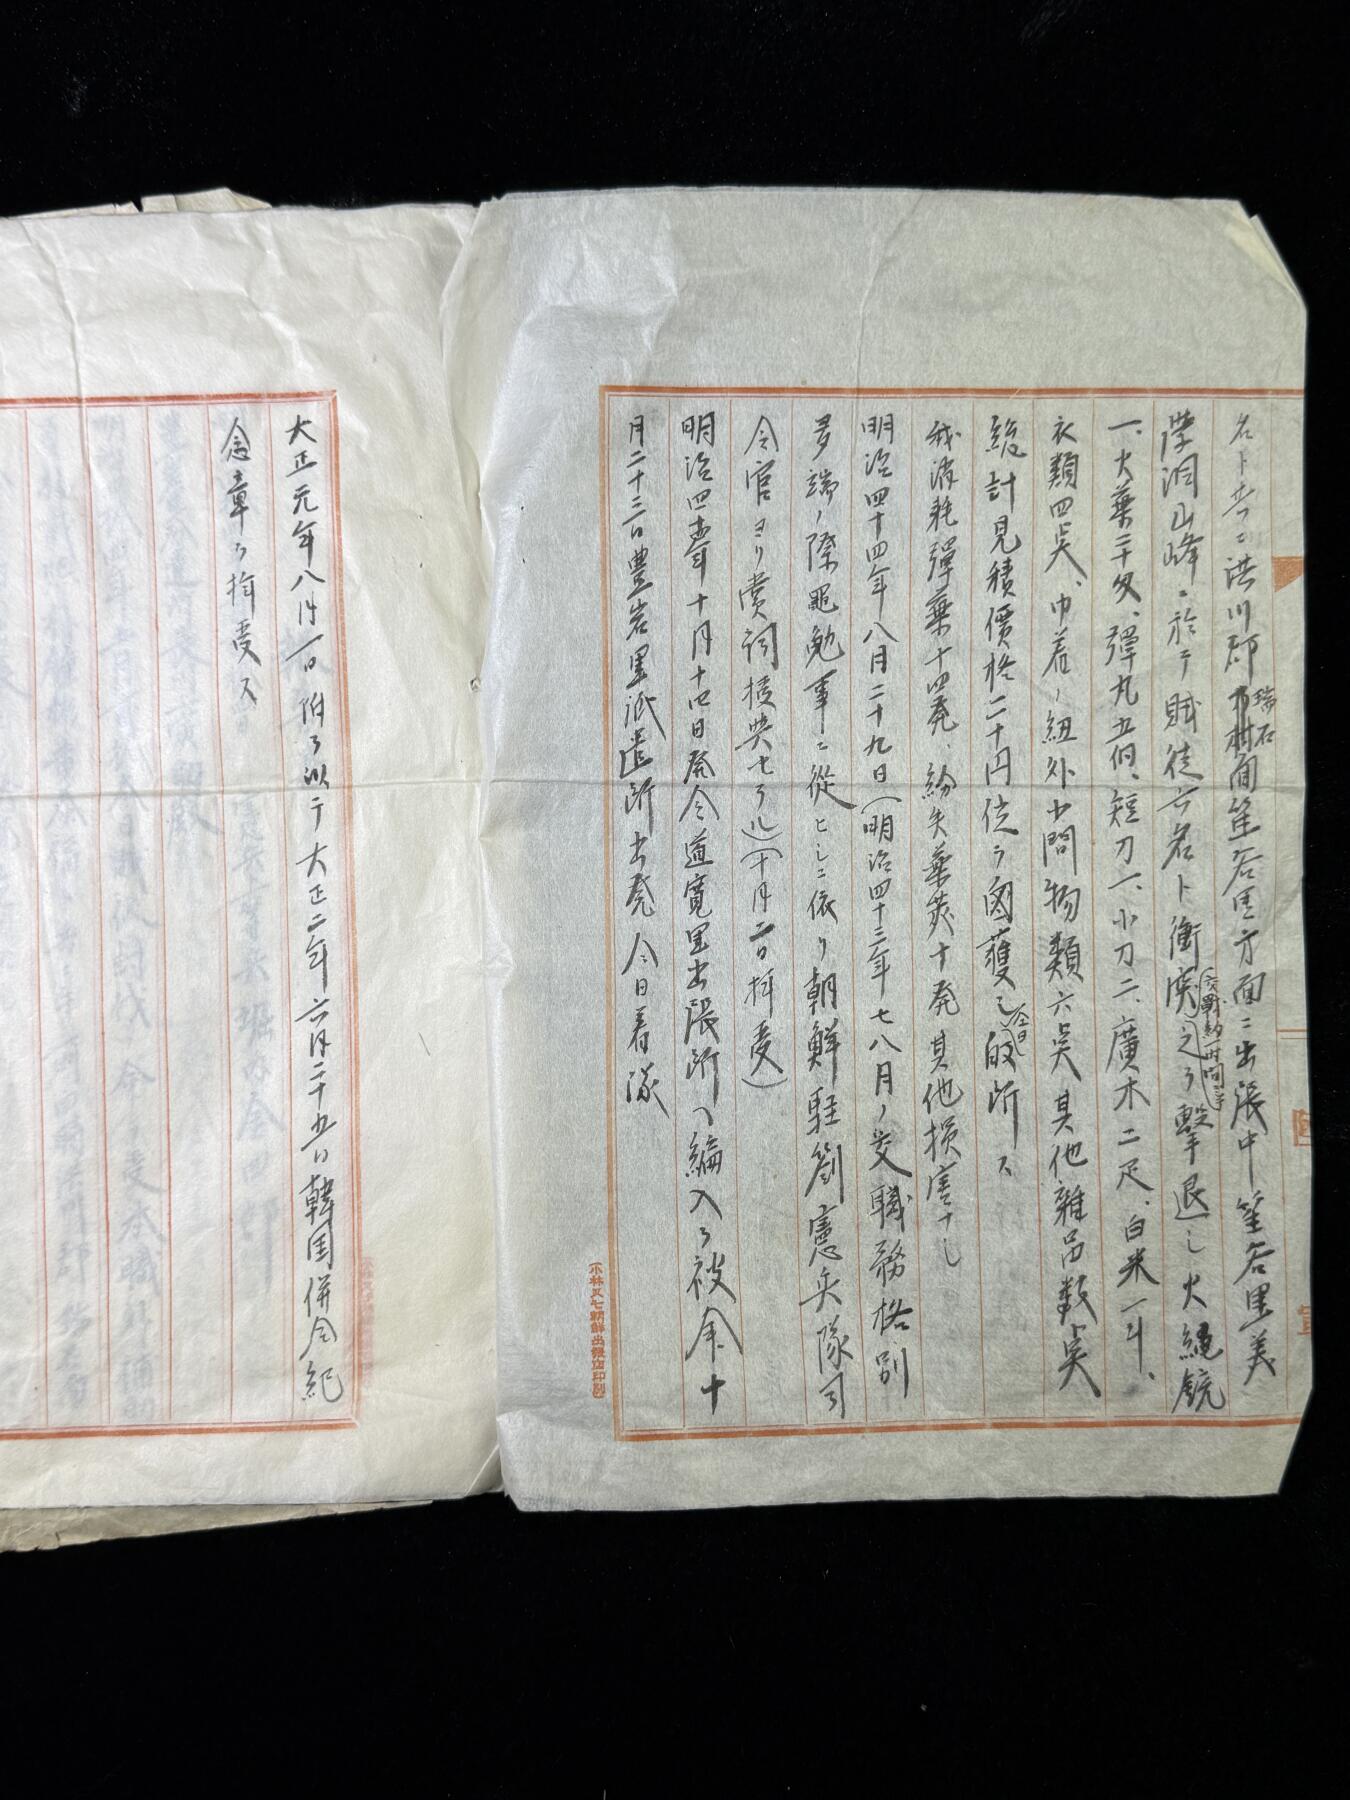 名ト共ニ洪川郡瑞石面笙谷里方面ニ出張中笙谷里美
洞山峰ニ於テ賊徒六名ト衝突(交戦約一時間ニテ)之ヲ撃退シ火縄銃
一、火薬二十匁、弾丸五個、短刀一、小刀二、廣木二疋、白米一斗、
衣類四点、巾着ノ紐外小間物類六点其他雑品数点
総計見積價格二十円位ヲ鹵獲シ(仝日)皈所ス
我消耗弾薬十四発、紛失薬莢十発其他損害ナシ
明治四十四年八月二十九日(明治四十三年七八月ノ交職務格別
多端ノ際黽勉事ニ從ヒシニ依リ朝鮮駐箚憲兵隊司
令官ヨリ賞詞授与セラル)(十月二日拝受)
明治四十四年十月十四日発令道寛里出張所ヘ編入ヲ被命十
月二十三日豊岩里派遣所出発仝日着隊
(小林又七朝鮮出張店印刷)
大正元年八月一日附ヲ以テ大正二年六月二十五日韓国併合紀
念章ヲ拝受ス